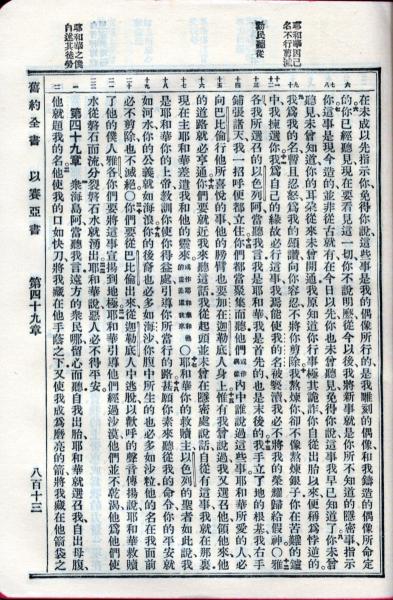 耶和華因己
名不行剪滅
勸民聽從
耶和華之僕
自述其徒勞
在未成以先指示你、免得你說這些事是我的偶像所行的是我雕刻的偶像和我鑄造的偶像所命定
的你已經聽見現在要看見這一切你不說明麼從今以後我將新事就是你所不知道的隱密事指示
你這事是現今造的並非從古就有在今日以先你也未曾聽見免得你說這事我早已知道了你未曾
聽見未曾知道你的耳朵從來未曾開通我原知道你行事極其詭詐你自從出胎以來便稱為悖逆的
我為我的名暫且忍怒為我的頌讚向你容忍不將你剪除我熬煉你卻不像熬煉銀子你在苦難的爐
中我揀選你我為自己的緣故必行這事我焉能使我的名被褻瀆我必不將我的榮耀歸給假神〇雅
各我所選召的以色列阿當聽我言我是耶和華我是首先的也是末後的我手立了地的根基我右手
鋪張諸天我一招呼便都立住你們都當聚集而聽他們內中誰說過這些事耶和華所愛的人必
向巴比倫行他所喜悅的事他的膀臂也要加在迦勒底人身上惟有我曾說過我又選召他領他來他
的道路就必亨通你們要就近我來聽這話我從起頭並未曾在隱密處說話自從有這事我就在那裏
現在主耶和華差遣我和他的靈來〇耶和華你的救贖主以色列的聖者如此說我
是耶和華你的上帝教訓你使你得益處引導你所當行的路甚願你素來聽從我的命令你的平安就
如河水你的公義就如海浪你的後裔也必多如海沙你腹中所生的也必多如沙粒他的名在我面前
必不剪除也不滅絕〇你們要從巴比倫出來從迦勒底人中逃脫以歡呼的聲音傳揚說耶和華救贖
了他的僕人雅各你們要將這事宣揚到地極耶和華引導他們經過沙漠他們並不乾渴他為他們使
水從磐石而流分裂磐石水就湧出耶和華說惡人必不得平安
第四十九章 衆海島阿當聽我言遠方的衆民哪留心而聽自我出胎耶和華就選召我自出母腹
他就題我的名他使我的口如快刀將我藏在他手蔭之下又使我成為磨亮的箭將我藏在他箭袋之
舊約全書 以賽亞書 第四十九章 八百十三